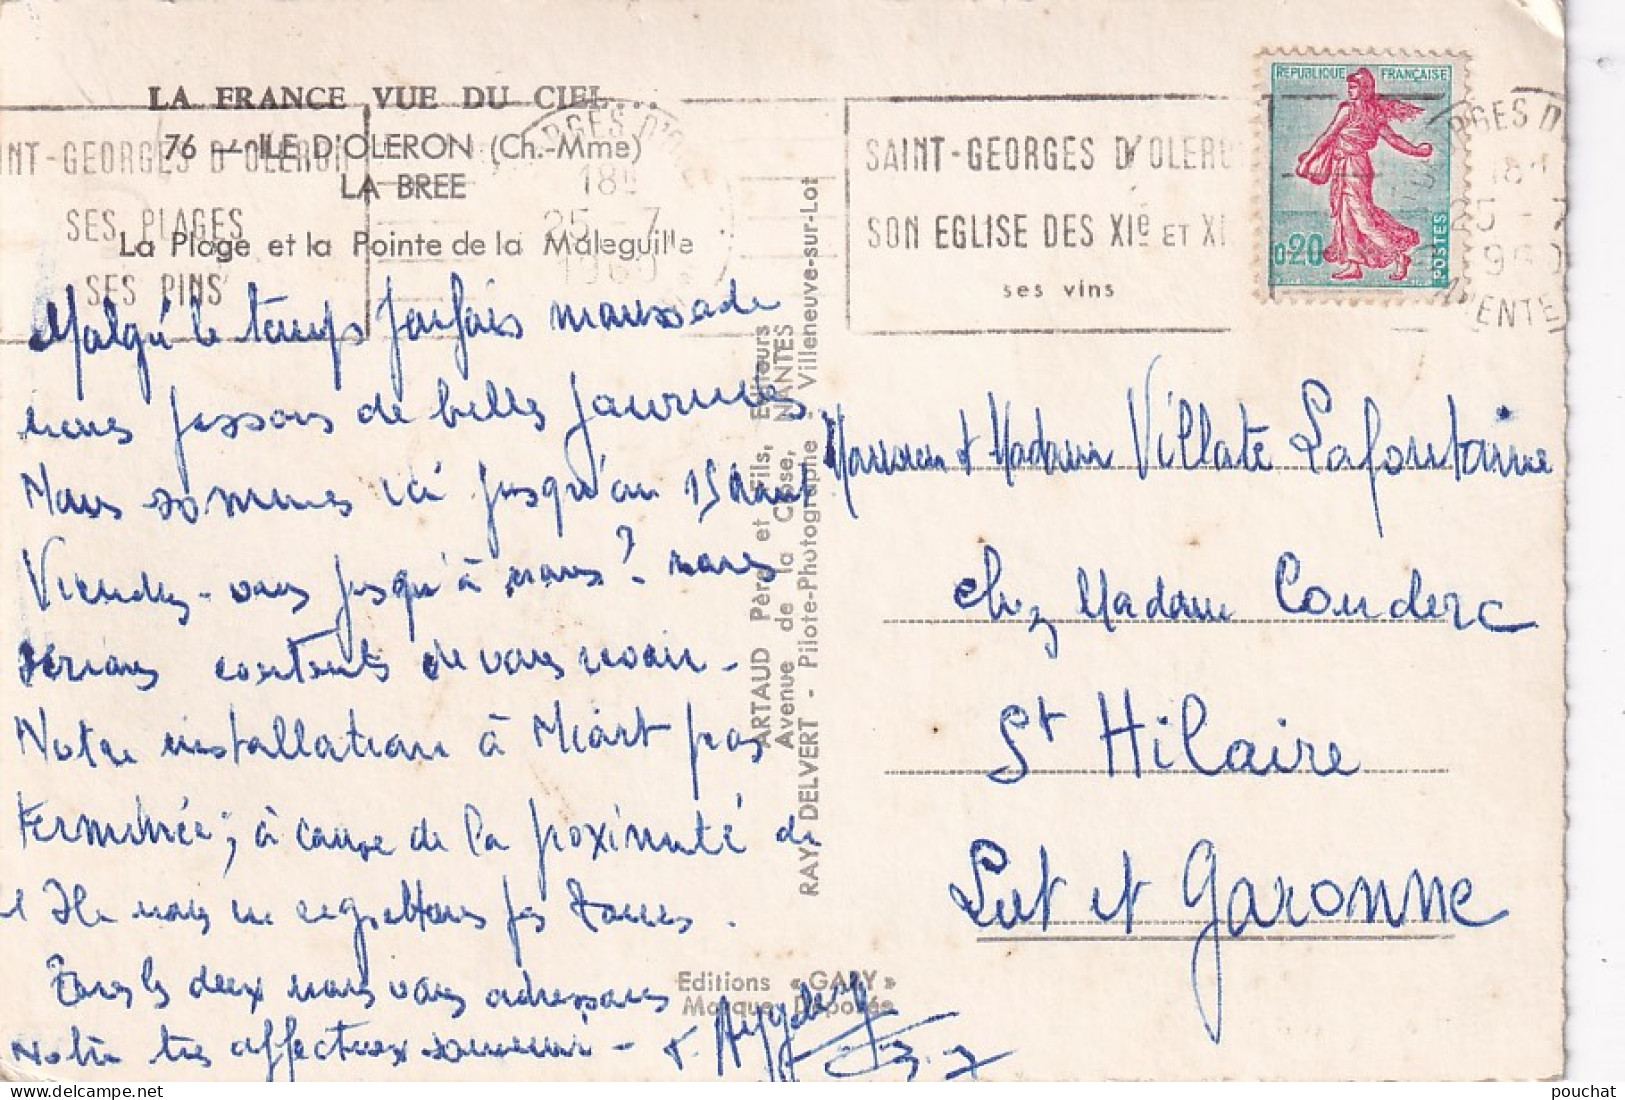 LA FRANCE VUE DU CIEL...
76 — ILE D'OLERON (Ch.-Mme)
LA BREE
La Plage et la Pointe de la Maleguille
NT-GEORGES D'OLERON
SES PLAGES
SES PINS
RGES D'O
18H
25-7
1960
SAINT-GEORGES D'OLERO
SON EGLISE DES XIe ET XI
ses vins
REPUBLIQUE FRANÇAISE
0,20
POSTES
RGES D'
18H
25-7
1960
ENTE
Malgré le temps parfois maussade
nous passons de belles journées.
Nous sommes ici jusqu'au 15 Aout
Viendrez-vous jusqu'à nous? nous
serions contents de vous revoir -
Notre installation à Niort pas
terminée; à cause de la proximité de
l'Ile nous ne regrettons pas
Tous les deux nous vous adressons
Notre très affectueux souvenir -
ARTAUD Père et Fils, Editeurs
Avenue de la Close, NANTES
RAY. DELVERT - Pilote-Photographe Villeneuve-sur-Lot
Editions « GABY »
Marque Déposée
Monsieur et Madame Villate Lafontaine
chez Madame Couderc
St Hilaire
Lot et Garonne
pouchat